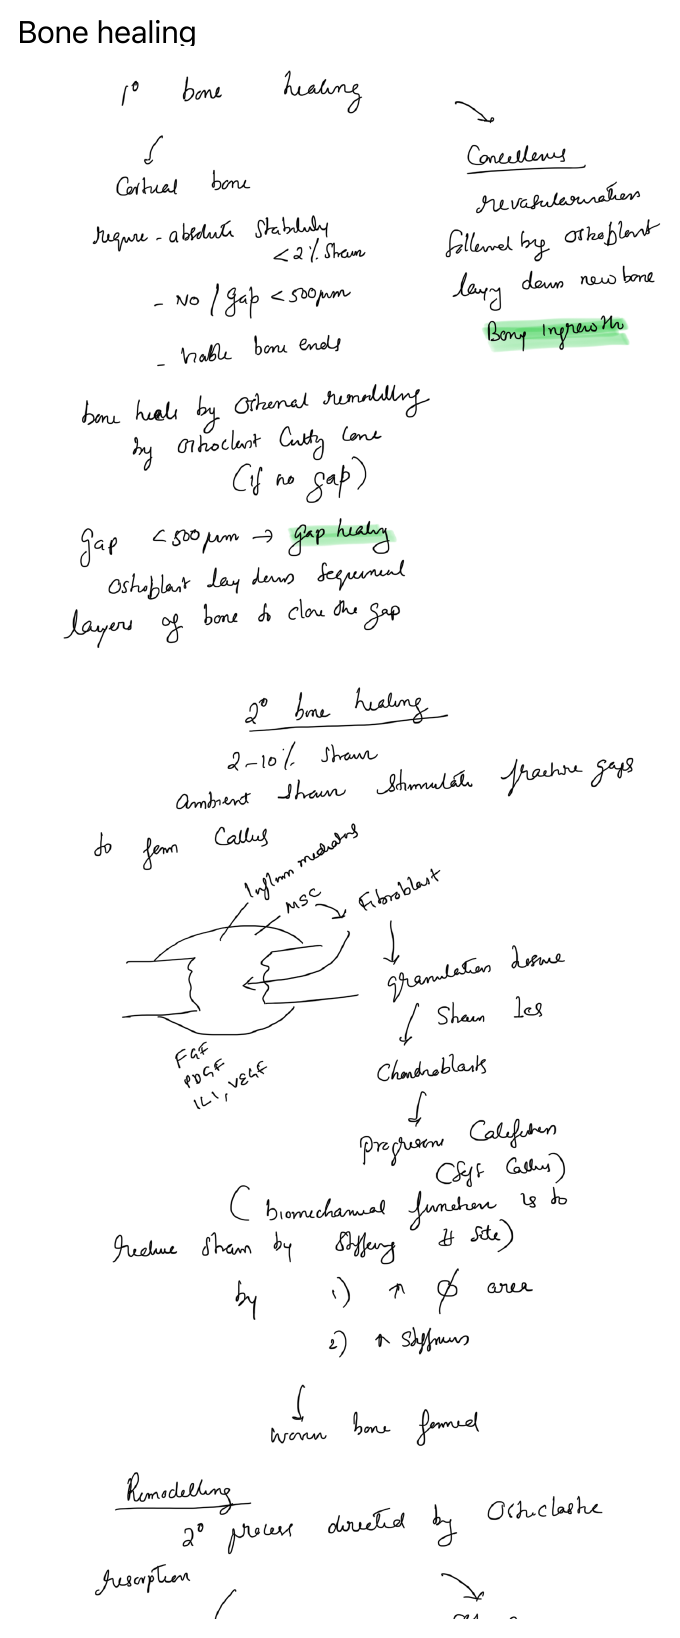 Bone healing
1° bone healing
Cortical bone
require - absolute stability
<2% strain
- No / gap <500μm
- viable bone ends
bone heals by Osteonal remodelling
by osteoclast Cutting Cone
(if no gap)
Cancellous
revascularisation
followed by osteoblast
laying down new bone
Bony Ingrowth
gap <500 μm → gap healing
Osteoblast lay down sequential
layers of bone to close the gap
2° bone healing
2-10% strain
Ambient strain stimulate fracture gaps
to form Callus
Inflam mediators
MSC
Fibroblast
granulation tissue
FGF
PDGF
IL1, VEGF
Strain
Chondroblasts
progressive Calcification
(Soft Callus)
( biomechanical function is to
reduce strain by stiffening # site)
by 1) ↑ area
2) ↑ stiffness
Woven bone formed
Remodelling
2° process directed by Osteoclastic
resorption